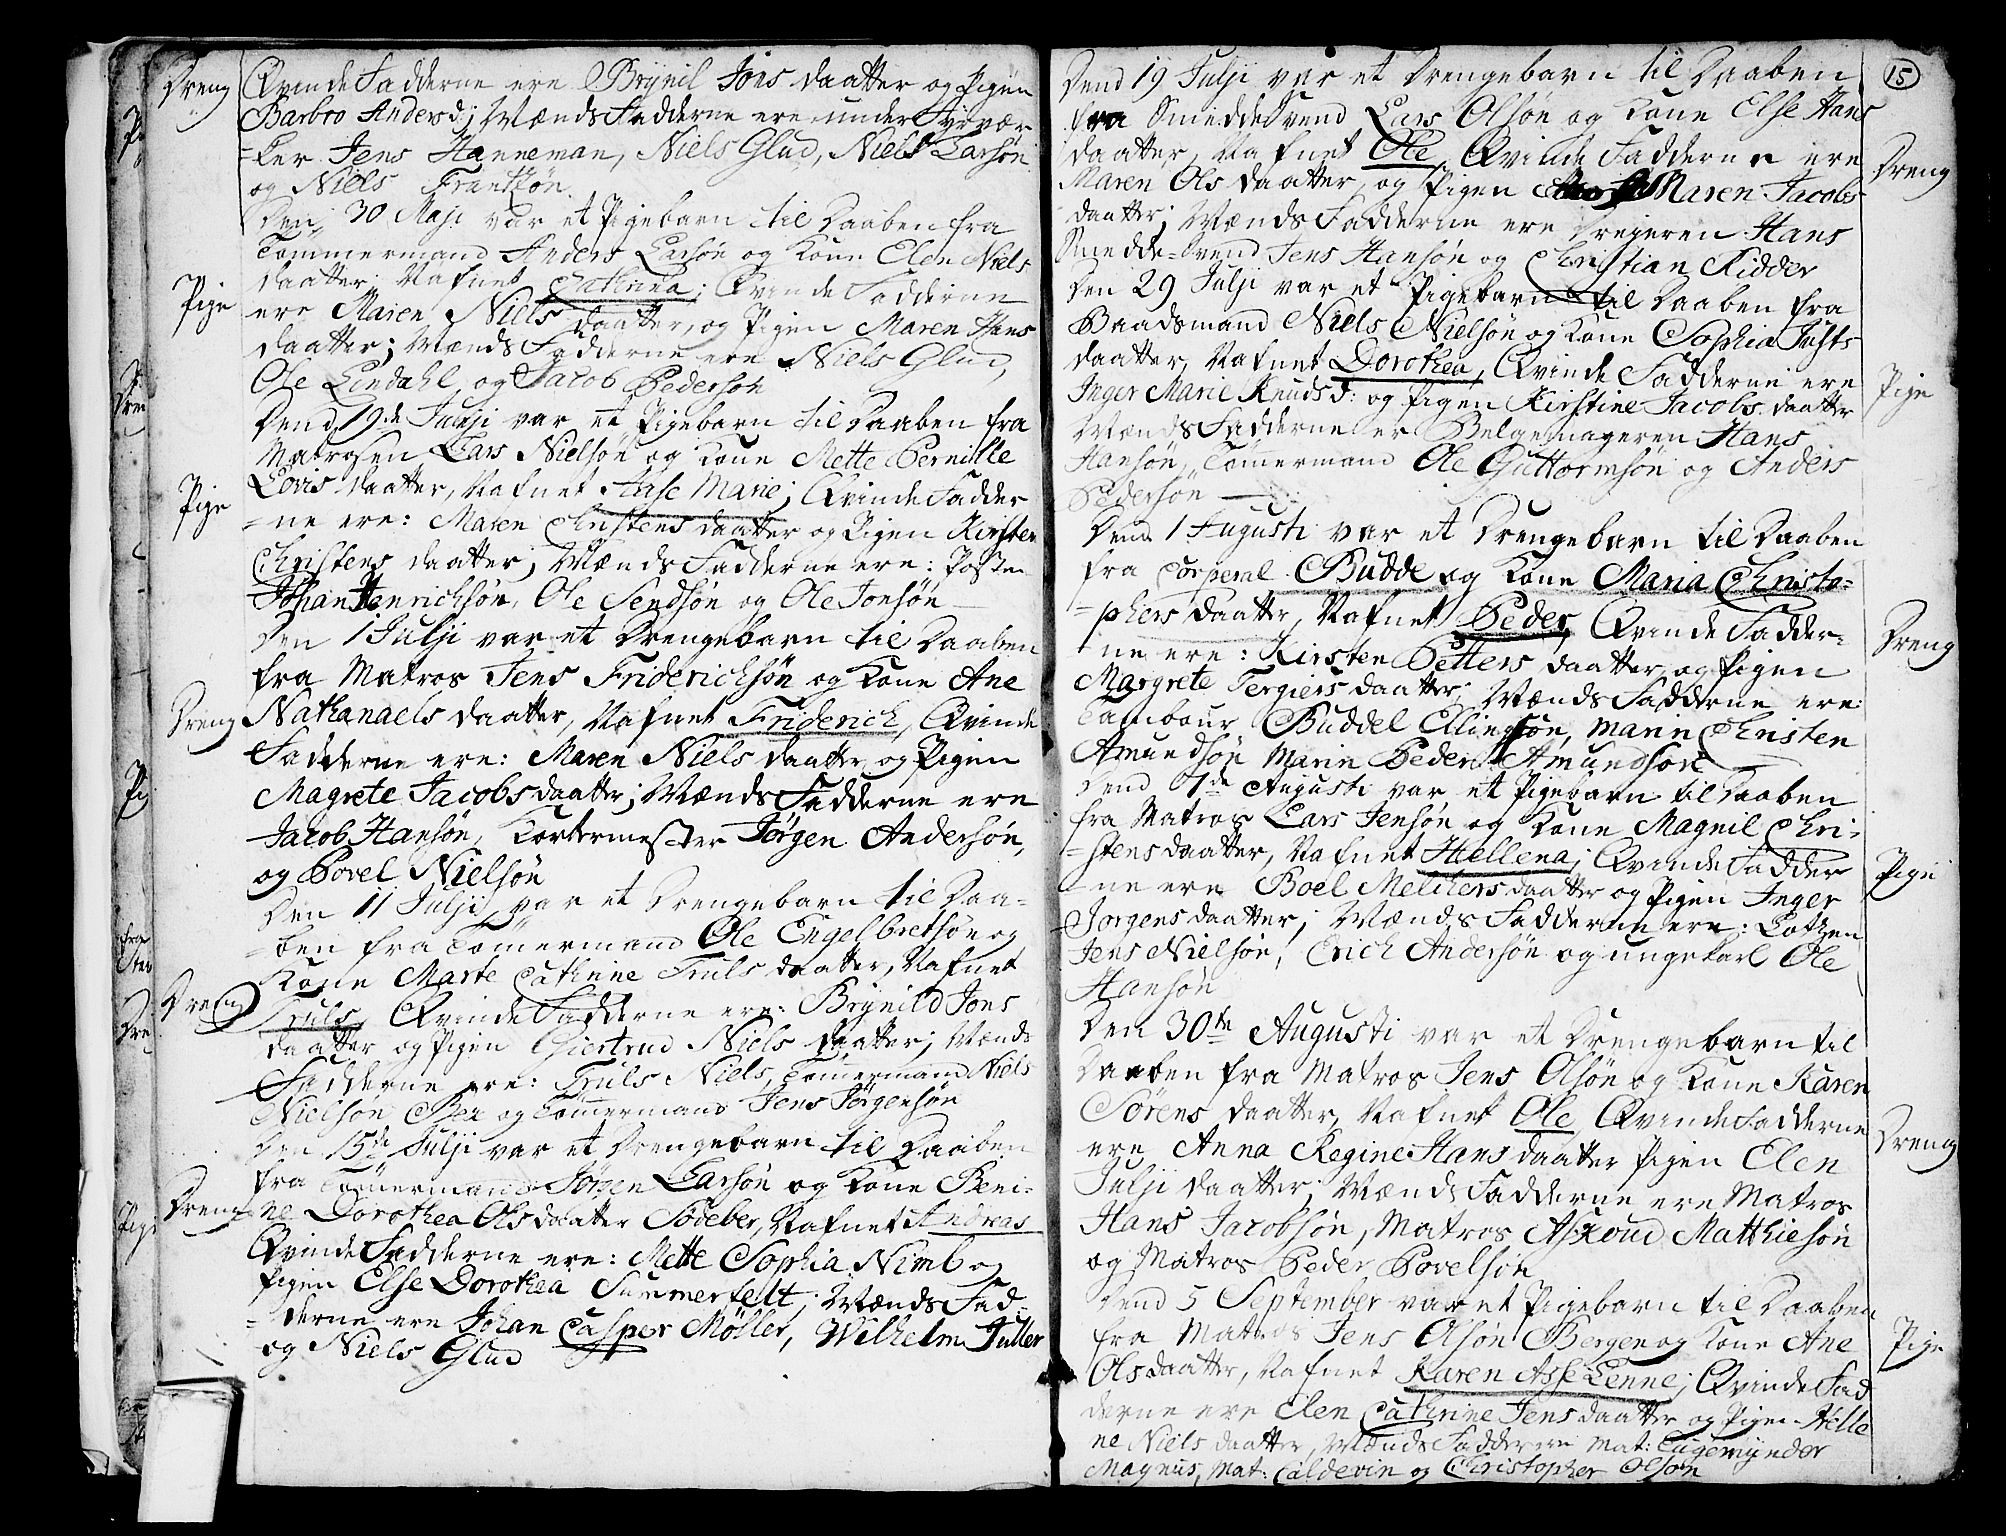 Dreng
Qvinde Fadderne ere Brynil Jons daatter og Pigen
Barbro Anders d:; Mænds Fadderne ere under Fyrvær
=ker Jens Hanneman, Niels Glud, Niels Larsøn
og Niels Frantsøn
Den 30 Maji var et Pigebarn til Daaben fra
Tømmermand Anders Larsøn og Kone Elen Niels
Pige
daatter, Nafnet Cathrina; Qvinde Fadderne
ere Maren Niels daatter, og Pigen Maren Hans
daatter; Mænds Fadderne ere Niels Glud,
Ole Lindahl, og Jacob Pedersøn
Dend 19de Junji var et Pigebarn til Daaben fra
Matrosen Lars Nielsøn og Kone Mette Pernille
Pige
Lovis daatter, Nafnet Anse Marie; Qvinde Fadder
=ne ere: Maren Christens daatter og Pigen Kirsten
Christens daatter; Mænds Fadderne ere:
Johan Henrichsøn, Ole Sendsøn og Ole Jonsøn
Den 1 Julji var et Drengebarn til Daaben
fra Matros Jens Friderichsøn og Kone Ane
Dreng
Nathanaels daatter, Nafnet Friderich, Qvinde
Fadderne ere: Maren Niels daatter og Pigen
Magrete Jacobs daatter; Mænds Fadderne ere
Jacob Hansøn, Kortermester Jørgen Andersøn,
og Povel Nielsøn
Den 11 Julji var et Drengebarn til Daa=
=ben fra Tømermand Ole Engelbretsøn og
Kone Marte Cathrine Truls daatter, Nafnet
Dreng
Truls, Qvinde Fadderne ere: Brynild Jons
daatter og Pigen Giertrud Niels daatter; Mænds
Fadderne ere: Truls Niels, Tømermand Niels
Nielsøn Bex og Tømmermand Jens Jørgensøn
Den 15de Julji var et Drengebarn til Daaben
fra Tømermand Jørgen Larsøn og Kone Beni=
Dreng
=ne Dorothea Ols daatter Södeber, Nafnet Andreas
Qvinde Fadderne ere: Mette Sophia Nimb og
Pigen Else Dorothea Summerfelt; Mænds Fad=
=derne ere Johan Casper Möller, Wilhelm Juller
og Niels Glud
15
Dend 19 Julji var et Drengebarn til Daaben
fra Smedde Svend Lars Olsøn og Kone Else Hans
daatter, Nafnet Ole, Qvinde Fadderne ere
Dreng
Maren Ols daatter, og Pigen Maren Jacobs
daatter; Mænds Fadderne ere Drejeren Hans
Smedde=Svend Jens Hansøn og Christian Ridder
Den 29 Julji var et Pigebarn til Daaben fra
Baadsmand Niels Nielsøn og Kone Sophia Justs
daatter, Nafnet Dorothea, Qvinde Fadderne ere
Pige
Inger Marie Knuds d: og Pigen Kirstine Jacobs daatter
Mænds Fadderne er Belgemageren Hans
Hansøn, Tømmermand Ole Guttormsøn og Anders
Pedersøn
Dend 1 Augusti var et Drengebarn til Daaben
fra Corperal Budde og Kone Maria Christo=
=phers daatter, Nafnet Peder, Qvinde Fadder=
Dreng
ne ere: Kirsten Petters daatter og Pigen
Margrete Tergiers daatter; Mænds Fadderne ere:
Tambour Buddel Ellingsøn, Marin Christen
Amundsøn Marin Peder Amundsøn
Dend 7de Augusti var et Pigebarn til Daaben
fra Matros Lars Jensøn og Kone Magnil Chri=
=stens daatter, Nafnet Hellena; Qvinde Fadder
Pige
=ne ere Boel Melchers daatter og Pigen Inger
Jørgens daatter; Mænds Fadderne ere: Lotzen
Jens Nielsøn, Erich Andersøn og ungekarl Ole
Hansøn
Den 30te Augusti var et Drengebarn til
Daaben fra Matros Jens Olsøn og Kone Karen
Sørens daatter, Nafnet Ole, Qvinde Fadderne
Dreng
ere Anna Regine Hans daatter Pigen Elen
Julji daatter; Mænds Fadderne ere Matros
Hans Jacobsøn, Matros Askoud Matthiesøn
og Matros Peder Povelsøn
Dend 5 September var et Pigebarn til Daaben
fra Matros Jens Olsøn Bergen og Kone Ane
Pige
Ols daatter, Nafnet Karen Asse Lenne; Qvinde Fad
derne ere Elen Cathrine Jens daatter og Pigen Helle
ne Niels daatter, Mænds Fadder ere Mat:
Magnus, Mat: Caldevin og Christopher Olson